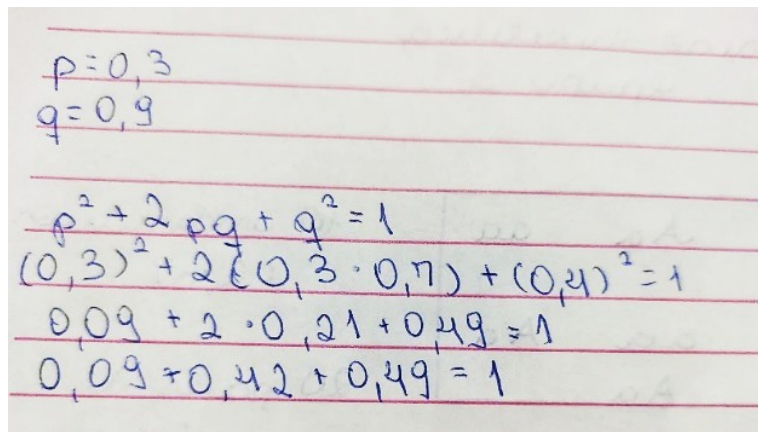 p = 0,3
q = 0,9
p² + 2pq + q² = 1
(0,3)² + 2(0,3 · 0,7) + (0,4)² = 1
0,09 + 2 · 0,21 + 0,49 = 1
0,09 + 0,42 + 0,49 = 1